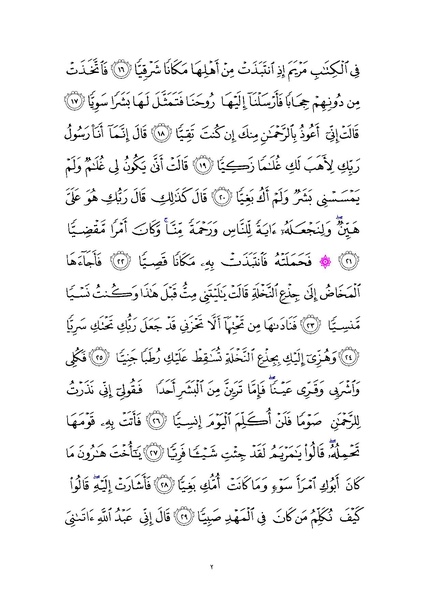 فِى ٱلْكِتَٰبِ مَرْيَمَ إِذِ ٱنتَبَذَتْ مِنْ أَهْلِهَا مَكَانًا شَرْقِيًّا ﴿١٦﴾ فَٱتَّخَذَتْ
مِن دُونِهِمْ حِجَابًا فَأَرْسَلْنَآ إِلَيْهَا رُوحَنَا فَتَمَثَّلَ لَهَا بَشَرًا سَوِيًّا ﴿١٧﴾
قَالَتْ إِنِّىٓ أَعُوذُ بِٱلرَّحْمَٰنِ مِنكَ إِن كُنتَ تَقِيًّا ﴿١٨﴾ قَالَ إِنَّمَآ أَنَا۠ رَسُولُ
رَبِّكِ لِأَهَبَ لَكِ غُلَٰمًا زَكِيًّا ﴿١٩﴾ قَالَتْ أَنَّىٰ يَكُونُ لِى غُلَٰمٌ وَلَمْ
يَمْسَسْنِى بَشَرٌ وَلَمْ أَكُ بَغِيًّا ﴿٢٠﴾ قَالَ كَذَٰلِكِ قَالَ رَبُّكِ هُوَ عَلَىَّ
هَيِّنٌ ۖ وَلِنَجْعَلَهُۥٓ ءَايَةً لِّلنَّاسِ وَرَحْمَةً مِّنَّا ۚ وَكَانَ أَمْرًا مَّقْضِيًّا
﴿٢١﴾ ۞ فَحَمَلَتْهُ فَٱنتَبَذَتْ بِهِۦ مَكَانًا قَصِيًّا ﴿٢٢﴾ فَأَجَآءَهَا
ٱلْمَخَاضُ إِلَىٰ جِذْعِ ٱلنَّخْلَةِ قَالَتْ يَٰلَيْتَنِى مِتُّ قَبْلَ هَٰذَا وَكُنتُ نَسْيًا
مَّنسِيًّا ﴿٢٣﴾ فَنَادَىٰهَا مِن تَحْتِهَآ أَلَّا تَحْزَنِى قَدْ جَعَلَ رَبُّكِ تَحْتَكِ سَرِيًّا
﴿٢٤﴾ وَهُزِّىٓ إِلَيْكِ بِجِذْعِ ٱلنَّخْلَةِ تُسَٰقِطْ عَلَيْكِ رُطَبًا جَنِيًّا ﴿٢٥﴾ فَكُلِى
وَٱشْرَبِى وَقَرِّى عَيْنًا ۖ فَإِمَّا تَرَيِنَّ مِنَ ٱلْبَشَرِ أَحَدًا فَقُولِىٓ إِنِّى نَذَرْتُ
لِلرَّحْمَٰنِ صَوْمًا فَلَنْ أُكَلِّمَ ٱلْيَوْمَ إِنسِيًّا ﴿٢٦﴾ فَأَتَتْ بِهِۦ قَوْمَهَا
تَحْمِلُهُۥ ۖ قَالُوا۟ يَٰمَرْيَمُ لَقَدْ جِئْتِ شَيْـًٔا فَرِيًّا ﴿٢٧﴾ يَٰٓأُخْتَ هَٰرُونَ مَا
كَانَ أَبُوكِ ٱمْرَأَ سَوْءٍ وَمَا كَانَتْ أُمُّكِ بَغِيًّا ﴿٢٨﴾ فَأَشَارَتْ إِلَيْهِ ۖ قَالُوا۟
كَيْفَ نُكَلِّمُ مَن كَانَ فِى ٱلْمَهْدِ صَبِيًّا ﴿٢٩﴾ قَالَ إِنِّى عَبْدُ ٱللَّهِ ءَاتَىٰنِىَ
٢